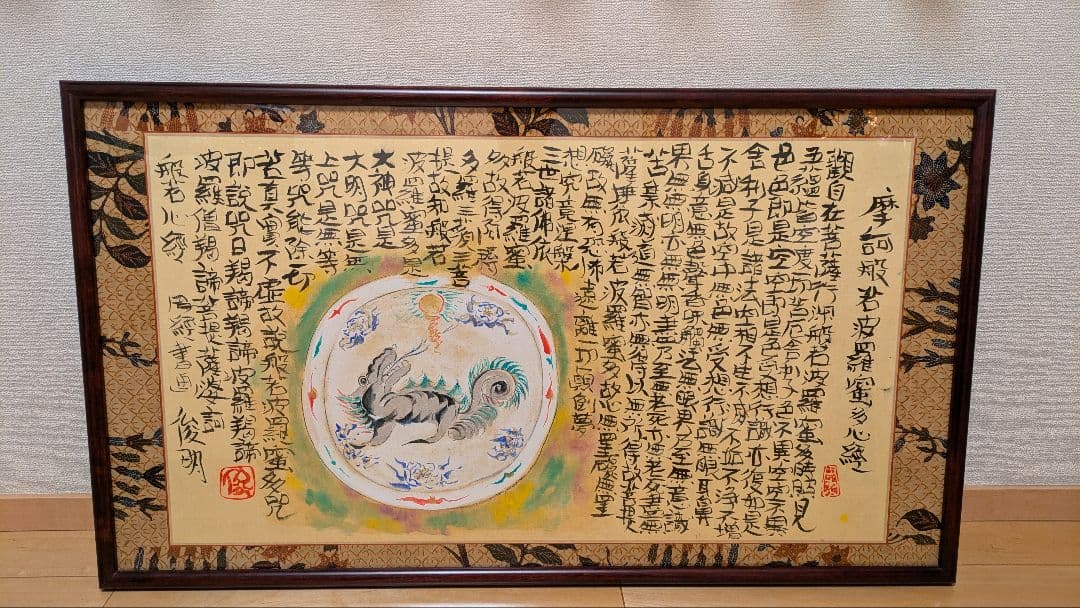 摩訶般若波羅蜜多心經
觀自在菩薩行深般若波羅蜜多時照見
五蘊皆空度一切苦厄舎利子色不異空空不異
色色即是空空即是色受想行識亦復如是
舎利子是諸法空相不生不滅不垢不浄不増
不減是故空中無色無受想行識無眼耳鼻
舌身意無色聲香味觸法無眼界乃至無意識
界無無明亦無無明盡乃至無老死亦無老死盡無
苦集滅道無智亦無得以無所得故菩提
薩埵依般若波羅蜜多故心無罣礙無罣
礙故無有恐怖遠離一切顛倒夢
想究竟涅槃
三世諸佛依
般若波羅蜜
多故得阿耨
多羅三藐三菩
提故知般若
波羅蜜多是
大神咒是
大明咒是無
上咒是無等
等咒能除一切
苦真實不虚故説般若波羅蜜多咒
即説咒曰羯諦羯諦波羅羯諦
波羅僧羯諦菩提薩婆訶
般若心經
經書画 俊明